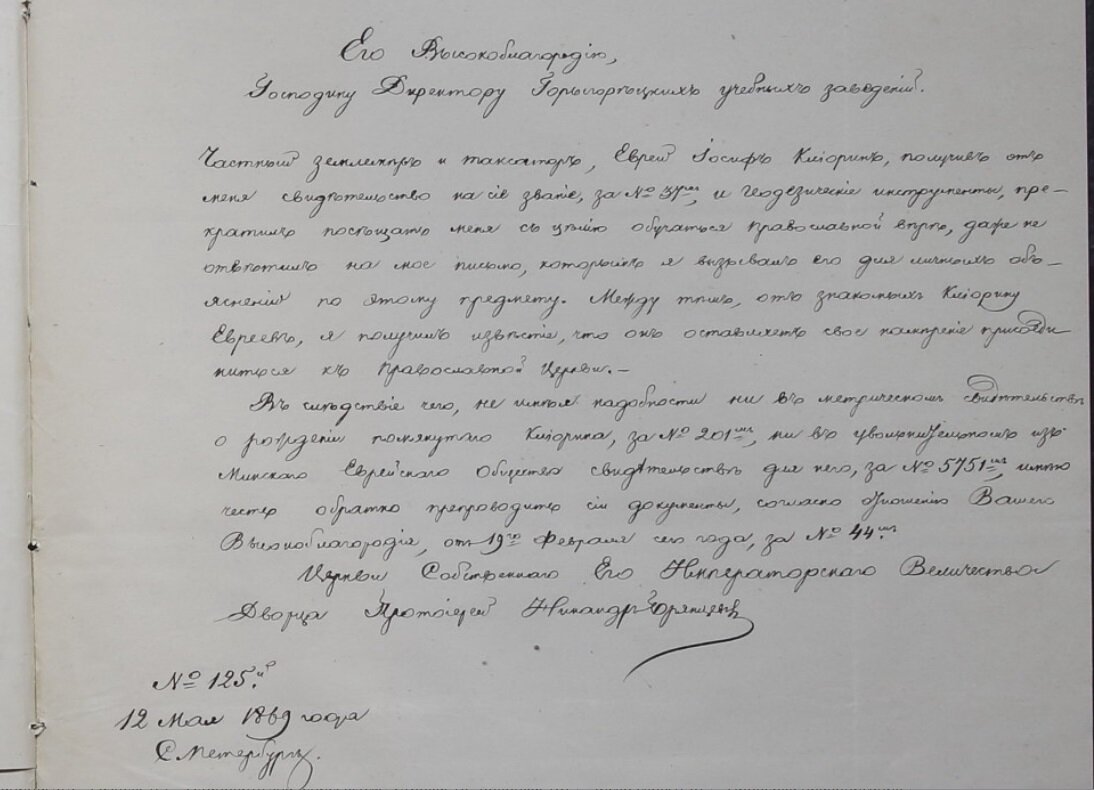 Его Высокоблагородію,
Господину Директору Горыгорѣцкихъ учебныхъ заведеній.
Частный землемѣръ и таксаторъ, Еврей Іосифъ Кліоринъ, получивъ отъ
меня свидѣтельство на сіе званіе, за № 37ᵐ, и геодезическіе инструменты, пре-
кратилъ посѣщать меня съ цѣлію обучаться православной вѣрѣ, даже не
отвѣтилъ на мое письмо, которымъ я вызывалъ его для личныхъ объ-
ясненій по этому предмету. Между тѣмъ, отъ знакомыхъ Кліорину
Евреевъ, я получилъ извѣстіе, что онъ оставляетъ свое намѣреніе присоеди
ниться къ Православной Церкви. –
Въ слѣдствіе чего, не имѣя надобности ни въ метрическомъ свидѣтельствѣ
о рожденіи помянутаго Кліорина, за № 201ᵐ, ни въ увольнительномъ изъ
Минскаго Еврейскаго Общества свидѣтельствѣ для него, за № 5751ᵐ, имѣю
честь обратно препроводить сіи документы, согласно отношенію Вашего
Высокоблагородія, отъ 19ᵍᵒ Февраля сего года, за № 44ᵐ.
Церкви Собственнаго Его Императорскаго Величества
Дворца Протоіерей Никандръ
№ 125.ᵘ
12 Мая 1869 года
С.Петербургъ.